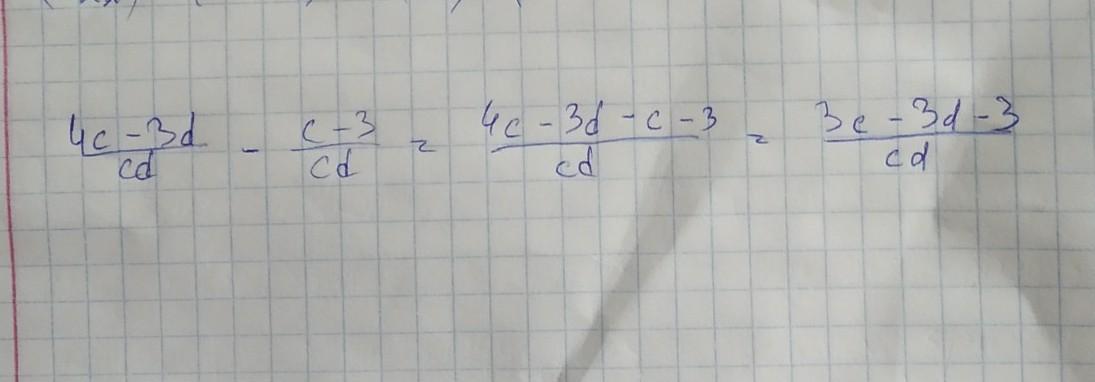 4c - 3d / cd - c - 3 / cd = 4c - 3d - c - 3 / cd = 3c - 3d - 3 / cd